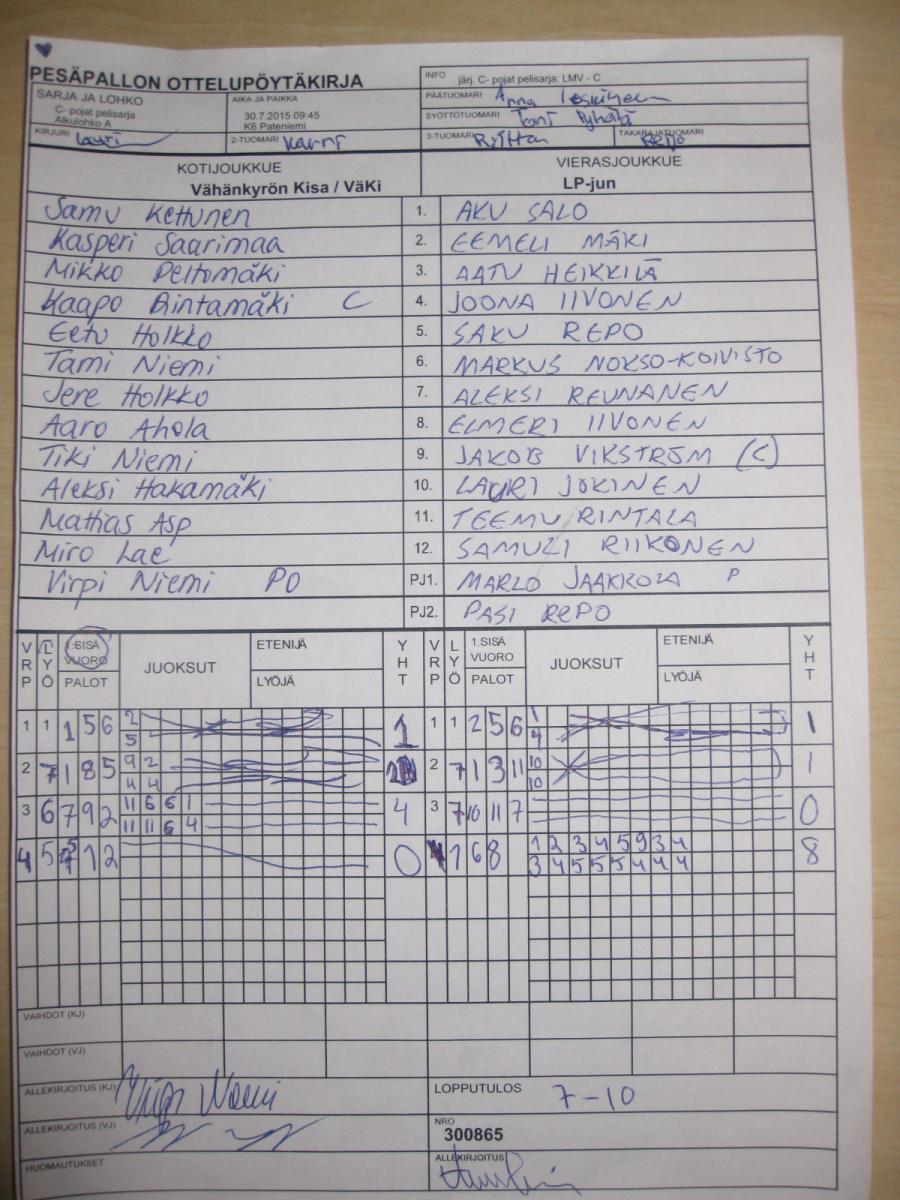 PESÄPALLON OTTELUPÖYTÄKIRJA
INFO järj. C- pojat pelisarja: LMV - C
SARJA JA LOHKO
C- pojat pelisarja
Alkulohko A
AIKA JA PAIKKA
30.7.2015 09:45
K6 Pateniemi
PÄÄTUOMARI Anna
SYÖTTÖTUOMARI Toni Pyhälä
KIRJURI Lauri
2-TUOMARI
3-TUOMARI
TAKARAJATUOMARI Reijo
KOTIJOUKKUE
Vähänkyrön Kisa / VäKi
VIERASJOUKKUE
LP-jun
Samu Kettunen 1. AKU SALO
Kasperi Saarimaa 2. EEMELI MÄKI
Mikko Peltomäki 3. AATU HEIKKILÄ
Kaapo Rintamäki C 4. JOONA IIVONEN
Eetu Holkko 5. SAKU REPO
Tami Niemi 6. MARKUS NOKSO-KOIVISTO
Jere Holkko 7. ALEKSI REUNANEN
Aaro Ahola 8. ELMERI IIVONEN
Tiki Niemi 9. JAKOB VIKSTRÖM (C)
Aleksi Hakamäki 10. LAURI JOKINEN
Mathias Asp 11. TEEMU RINTALA
Miro Lae 12. SAMULI RIIKONEN
Virpi Niemi PO PJ1. MARLO JAAKKOLA P
PJ2. PASI REPO
VRP LYÖ 1.SISÄ VUORO PALOT JUOKSUT ETENIJÄ LYÖJÄ YHT VRP LYÖ 1.SISÄ VUORO PALOT JUOKSUT ETENIJÄ LYÖJÄ YHT
1 1 1 5 6 2 1 1 1 2 5 6 1 1
5 4
2 7 1 8 5 9 2 2 2 7 1 3 11 10 1
4 4 10
3 6 7 9 2 11 6 6 1 4 3 7 10 11 7 0
11 11 6 4
4 5 5 1 2 0 4 1 6 8 1 2 3 4 5 9 3 4 8
3 4 5 5 5 4 4 4
VAIHDOT (KJ)
VAIHDOT (VJ)
ALLEKIRJOITUS (KJ) Virpi Niemi
LOPPUTULOS 7-10
ALLEKIRJOITUS (VJ)
NRO
300865
HUOMAUTUKSET
ALLEKIRJOITUS